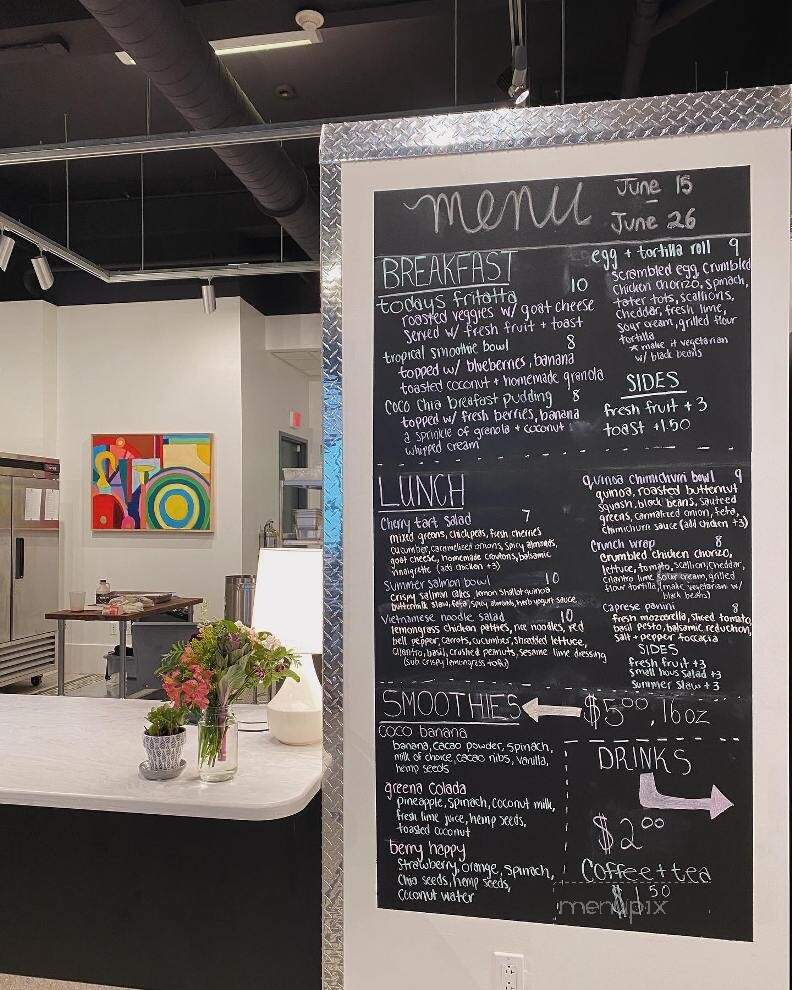 menu
June 15
-
June 26
BREAKFAST
todays fritatta 10
roasted veggies w/ goat cheese
served w/ fresh fruit + toast
tropical smoothie bowl 8
topped w/ blueberries, banana
toasted coconut + homemade granola
Coco Chia breafast pudding 8
topped w/ fresh berries, banana
a sprinkle of granola + coconut
whipped cream
egg + tortilla roll 9
Scrambled egg, crumbled
Chicken chorizo, spinach,
tater tots, scallions,
cheddar, fresh lime,
sour cream, grilled flour
tortilla
* make it vegetarian
w/ black beans
SIDES
fresh fruit +3
toast +1.50
LUNCH
Cherry tart salad 7
mixed greens, chickpeas, fresh cherries
cucumber, caramelized onions, spicy almonds,
goat cheese, homemade croutons, balsamic
vinaigrette (add chicken +3)
Summer salmon bowl 10
crispy salmon cakes lemon shallot quinoa
buttermilk slaw, feta, spicy almonds, herb yogurt sauce
Vietnamese noodle salad 10
lemongrass chicken patties, rice noodles, red
bell pepper, carrots, cucumbers, shredded lettuce,
cilantro, basil, crushed peanuts, sesame lime dressing
(sub crispy lemongrass tofu)
quinoa chimichurri bowl 9
quinoa, roasted butternut
squash, black beans, sauteed
greens, carmalized onion, feta,
chimichurri sauce (add chicken +3)
Crunch wrap 8
Crumbled chicken chorizo,
lettuce, tomato, scallion, cheddar,
cilantro lime sour cream, grilled
flour tortilla (make vegetarian w/
black beans)
Caprese panini 8
fresh mozzarella, sliced tomato
basil pesto, balsamic reduction,
salt + pepper foccacia
SIDES
fresh fruit +3
small hous salad +3
Summer slaw +3
SMOOTHIES
$5.00, 16oz
coco banana
banana, cacao powder, spinach,
milk of choice, cacao nibs, vanilla,
hemp seeds
greena colada
pineapple, spinach, coconut milk,
fresh lime juice, hemp seeds,
toasted coconut
berry happy
Strawberry, orange, spinach,
chia seeds, hemp seeds,
coconut water
DRINKS
$2.00
Coffee + tea
$1.50
menupix